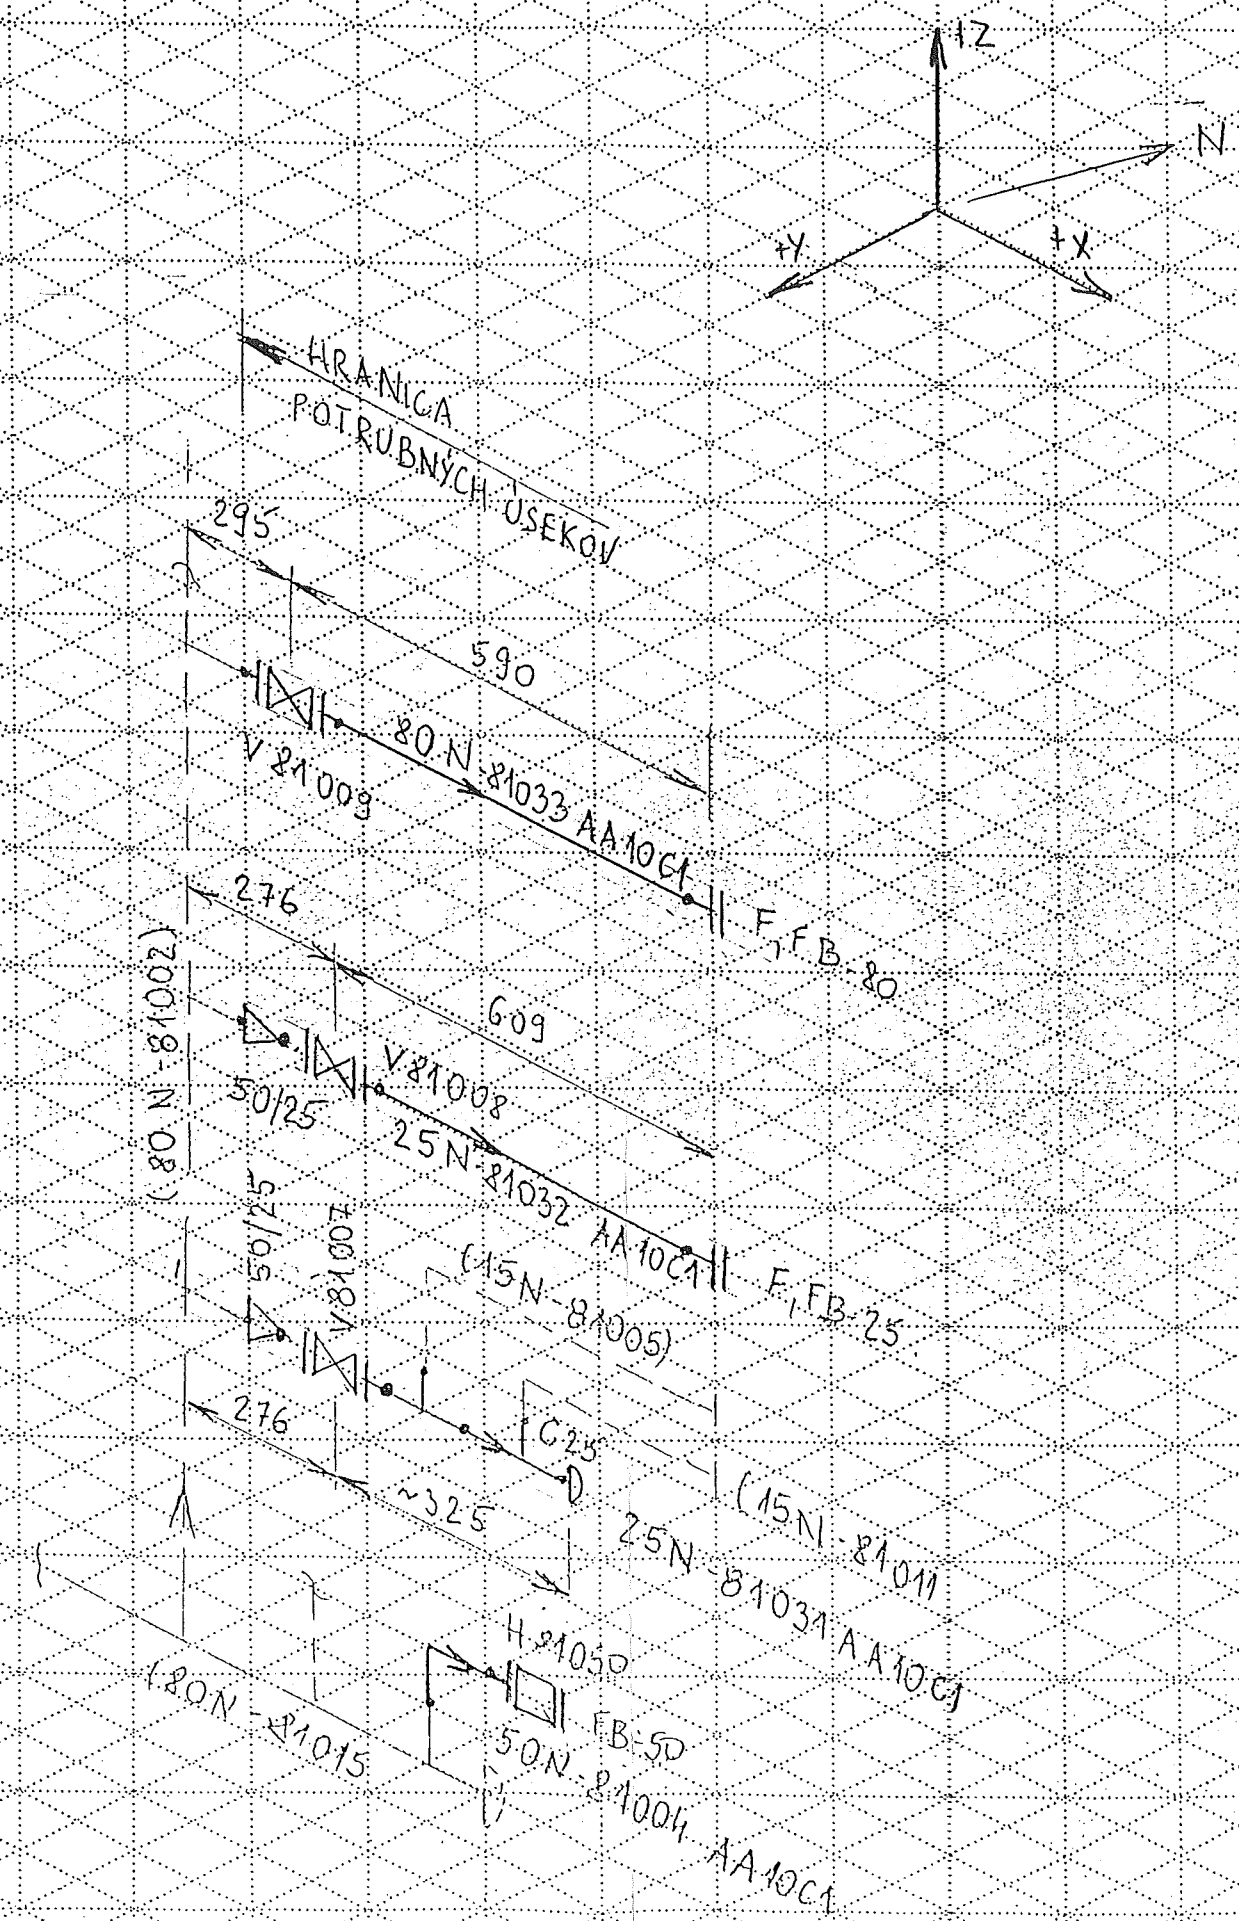 +Z
N
+Y
+X
HRANICA
POTRUBNÝCH ÚSEKOV
295
590
80 N-81033 AA10C1
V 81009
F, FB-80
276
609
(80 N-81002)
50/25
V81008
25N-81032 AA10C1
F, FB-25
50/25
V81007
(15N-81005)
276
C25
~325
(15N-81011
25N-81031 AA10C1
H 81050
FB-50
(80N-81015
50N-81004 AA10C1